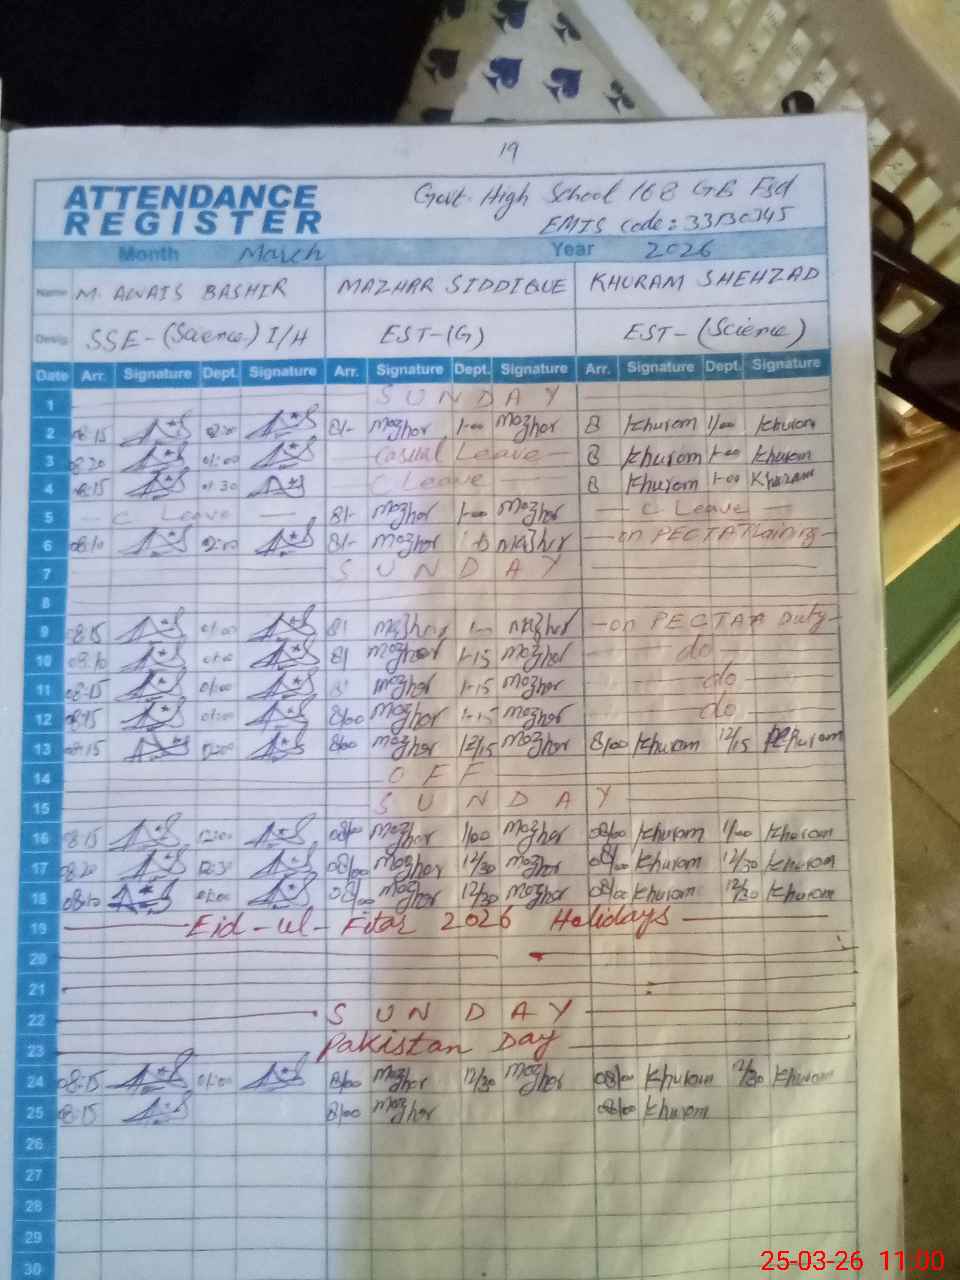 19
ATTENDANCE REGISTER
Govt. High School 168 GB Fsd
EMIS code: 33130345
Month March Year 2026
Name M. AWAIS BASHIR MAZHAR SIDDIQUE KHURAM SHEHZAD
Desig. SSE-(Science) I/H EST-(G) EST-(Science)
Date Arr. Signature Dept. Signature Arr. Signature Dept. Signature Arr. Signature Dept. Signature
1 SUNDAY
2 08:15 8/- Mazhar 1-00 Mazhar 8 Khuram 1/00 Khuram
3 08:20 01:00 Casual Leave 8 Khuram 1-00 Khuram
4 08:15 01:30 C Leave 8 Khuram 1-00 Khuram
5 C Leave 8/- Mazhar 1-00 Mazhar C Leave
6 08:10 02:00 8/- Mazhar Mazhar on PECTA Training
7 SUNDAY
8
9 08:15 01:00 8/ Mazhar Mazhar on PECTAA Duty
10 08:10 01:00 8/ Mazhar 1-15 Mazhar do
11 08:15 01:00 Mazhar 1-15 Mazhar do
12 08:15 01:00 8/00 Mazhar 1-15 Mazhar do
13 08:15 12:00 8/00 Mazhar 12/15 Mazhar 8/00 Khuram 12/15 Khuram
14 OFF
15 SUNDAY
16 08:15 12:00 08/00 Mazhar 1/00 Mazhar 08/00 Khuram 1/00 Khuram
17 08:20 12:30 08/00 Mazhar 12/30 Mazhar 08/00 Khuram 12/30 Khuram
18 08:10 01:00 08/00 Mazhar 12/30 Mazhar 08/00 Khuram 12/30 Khuram
19 Eid-ul-Fitar 2026 Holidays
20
21
22 SUNDAY
23 Pakistan Day
24 08:15 01:00 8/00 Mazhar 12/30 Mazhar 08/00 Khuram 12/30 Khuram
25 08:15 8/00 Mazhar 08/00 Khuram
26
27
28
29
30
25-03-26 11:00